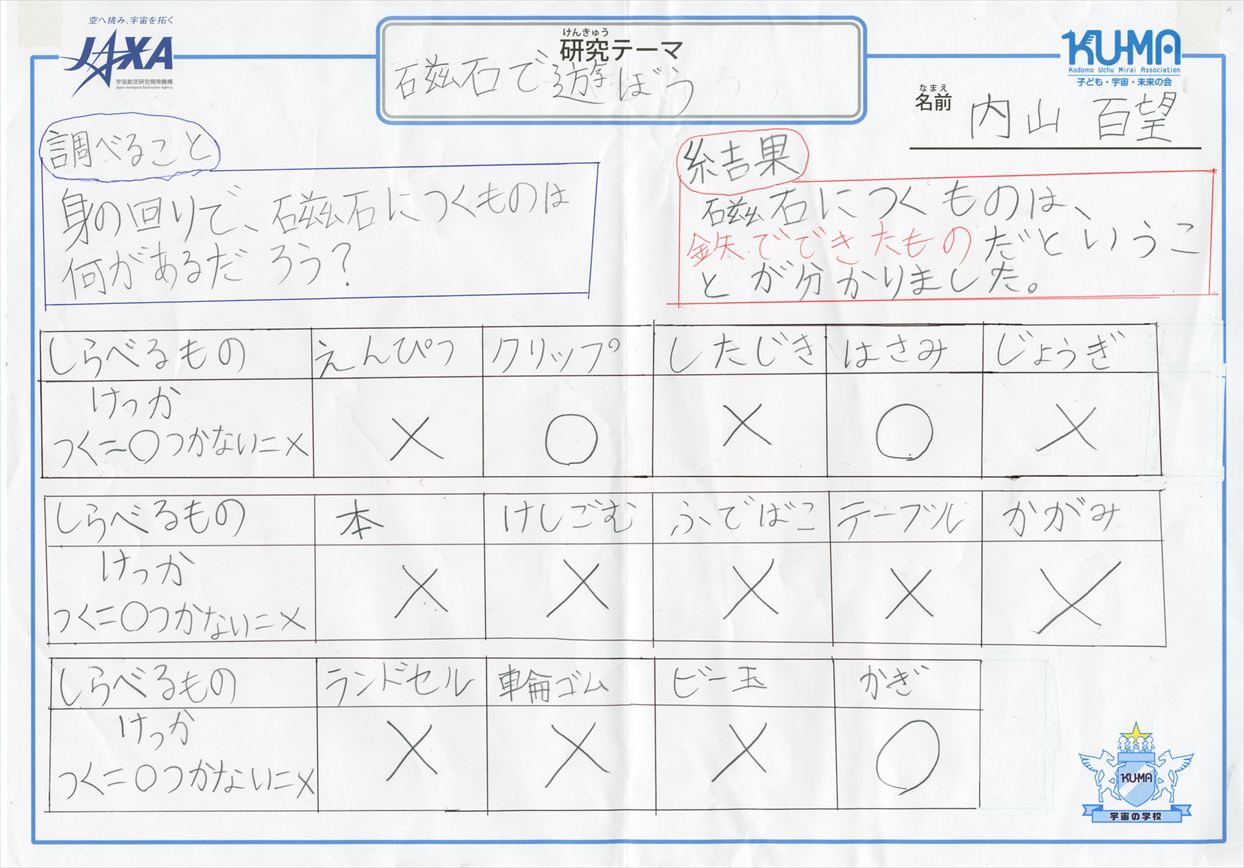 空へ挑み、宇宙を拓く
JAXA
宇宙航空研究開発機構
Japan Aerospace Exploration Agency
けんきゅう
研究テーマ
磁石で遊ぼう
KU-MA
Kodomo Uchu Mirai Association
子ども・宇宙・未来の会
なまえ
名前 内山 百望
調べること
身の回りで、磁石につくものは
何があるだろう?
結果
磁石につくものは、
鉄でできたものだというこ
とが分かりました。
しらべるもの えんぴつ クリップ したじき はさみ じょうぎ
けっか
つく=○つかない=× × ○ × ○ ×
しらべるもの 本 けしごむ ふでばこ テーブル かがみ
けっか
つく=○つかない=× × × × × ×
しらべるもの ランドセル 輪ゴム ビー玉 かぎ
けっか
つく=○つかない=× × × × ○
KU-MA
宇宙の学校